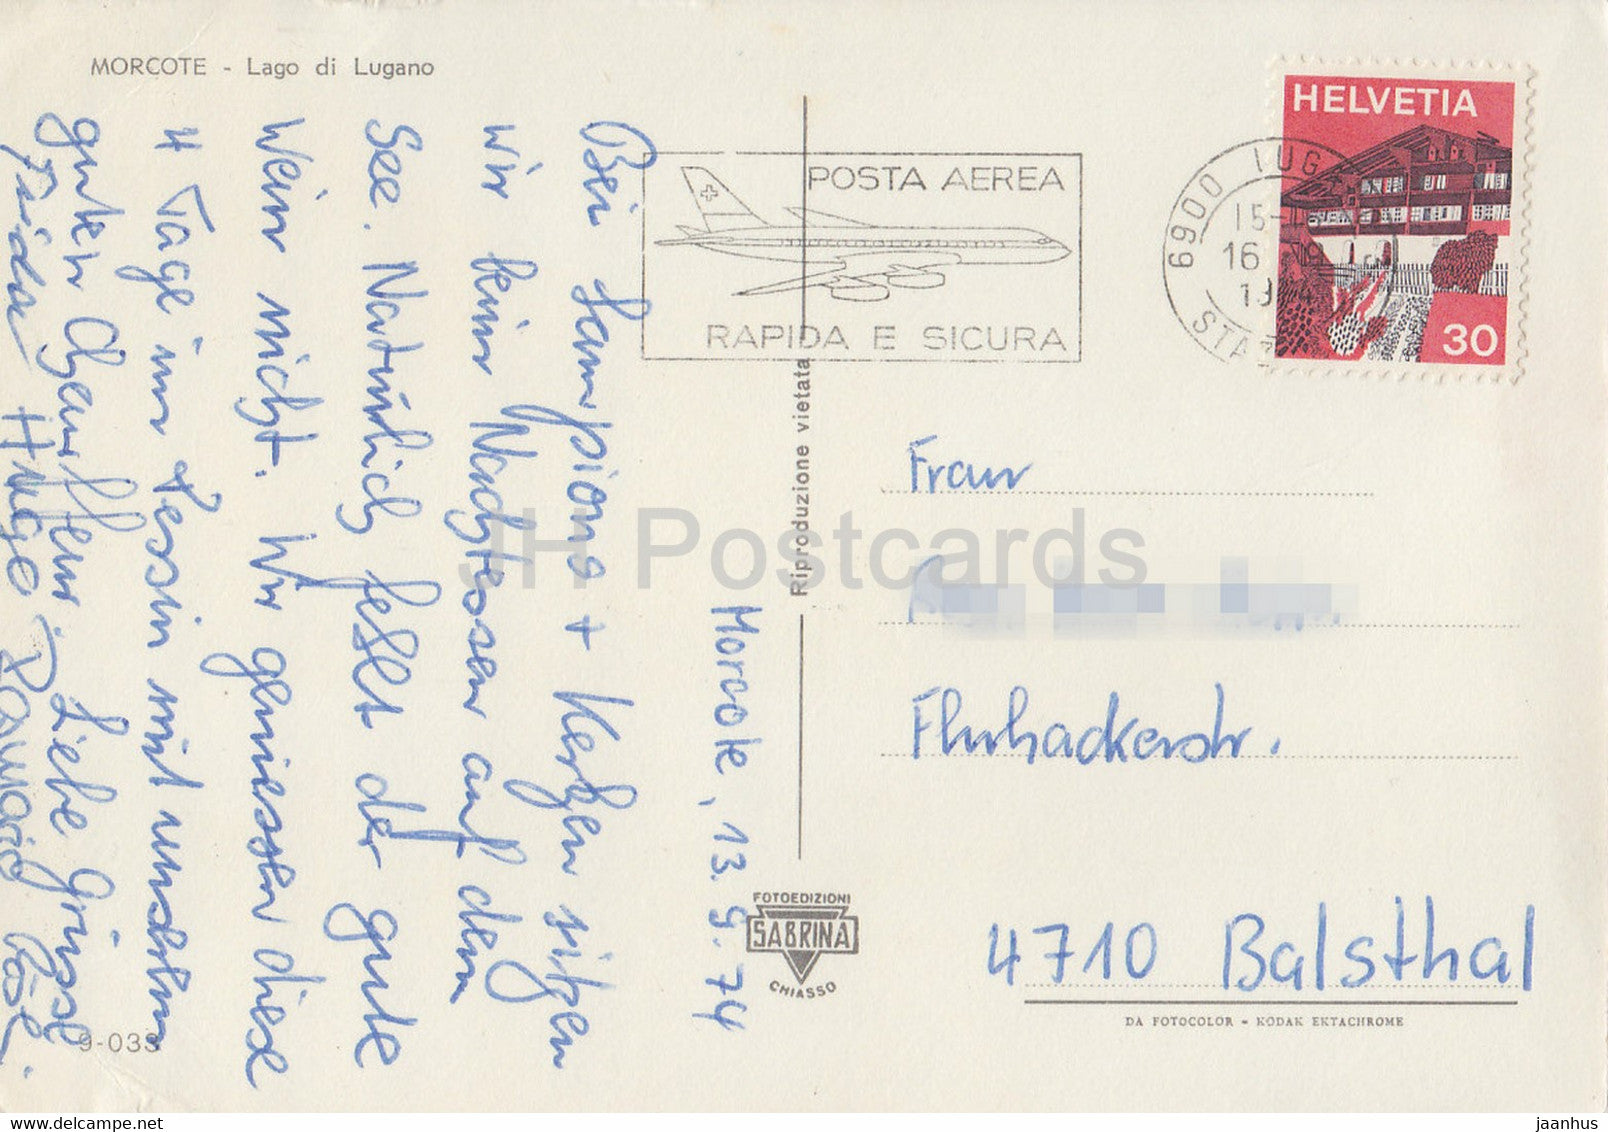 MORCOTE - Lago di Lugano
Morcote, 13.9.74
Bei Lampions + Kerzen sitzen
wir beim Nachtessen auf dem
See. Natürlich fehlt der gute
Wein nicht. Wir geniessen diese
4 Tage im Tessin mit unserm
guten Chauffeur. Liebe Grüsse
Hugo
9-033
Riproduzione vietata
FOTOEDIZIONI
SABRINA
CHIASSO
POSTA AEREA
RAPIDA E SICURA
6900 LUG
15-
16
HELVETIA
30
Frau
Fluhackerstr.
4710 Balsthal
DA FOTOCOLOR - KODAK EKTACHROME
JH Postcards
jaanhus